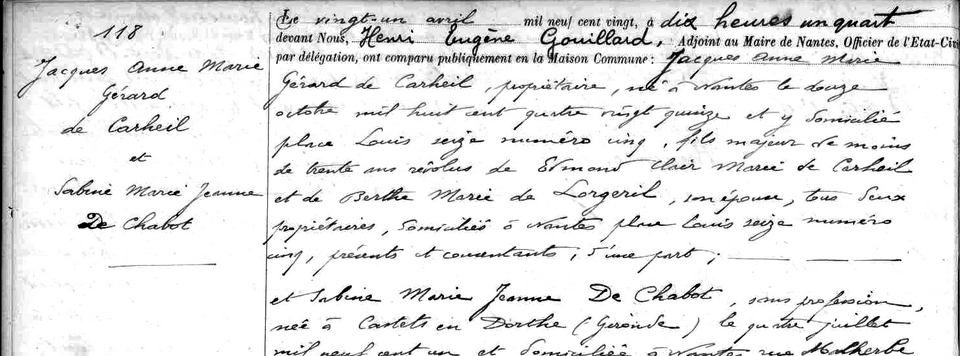 118
Jacques Anne Marie
Gérard
de Carheil
et
Sabine Marie Jeanne
De Chabot
Le vingt-un avril mil neuf cent vingt, à dix heures un quart
devant Nous, Henri Eugène Gouillard, Adjoint au Maire de Nantes, Officier de l'Etat-Civ
par délégation, ont comparu publiquement en la Maison Commune : Jacques Anne Marie
Gérard de Carheil, propriétaire, né à Nantes le douze
octobre mil huit cent quatre vingt quinze et y domicilié
place Louis seize numéro cinq, fils majeur de moins
de trente ans révolus de Edmond Clair Marie de Carheil
et de Berthe Marie de Lorgeril, son épouse, tous deux
propriétaires, domiciliés à Nantes place Louis seize numéro
cinq, présents et consentants, d'une part ;
et Sabine Marie Jeanne De Chabot, sans profession,
née à Castets en Dorthe (Gironde) le quatre juillet
mil neuf cent un et domiciliée à Nantes rue Malherbe